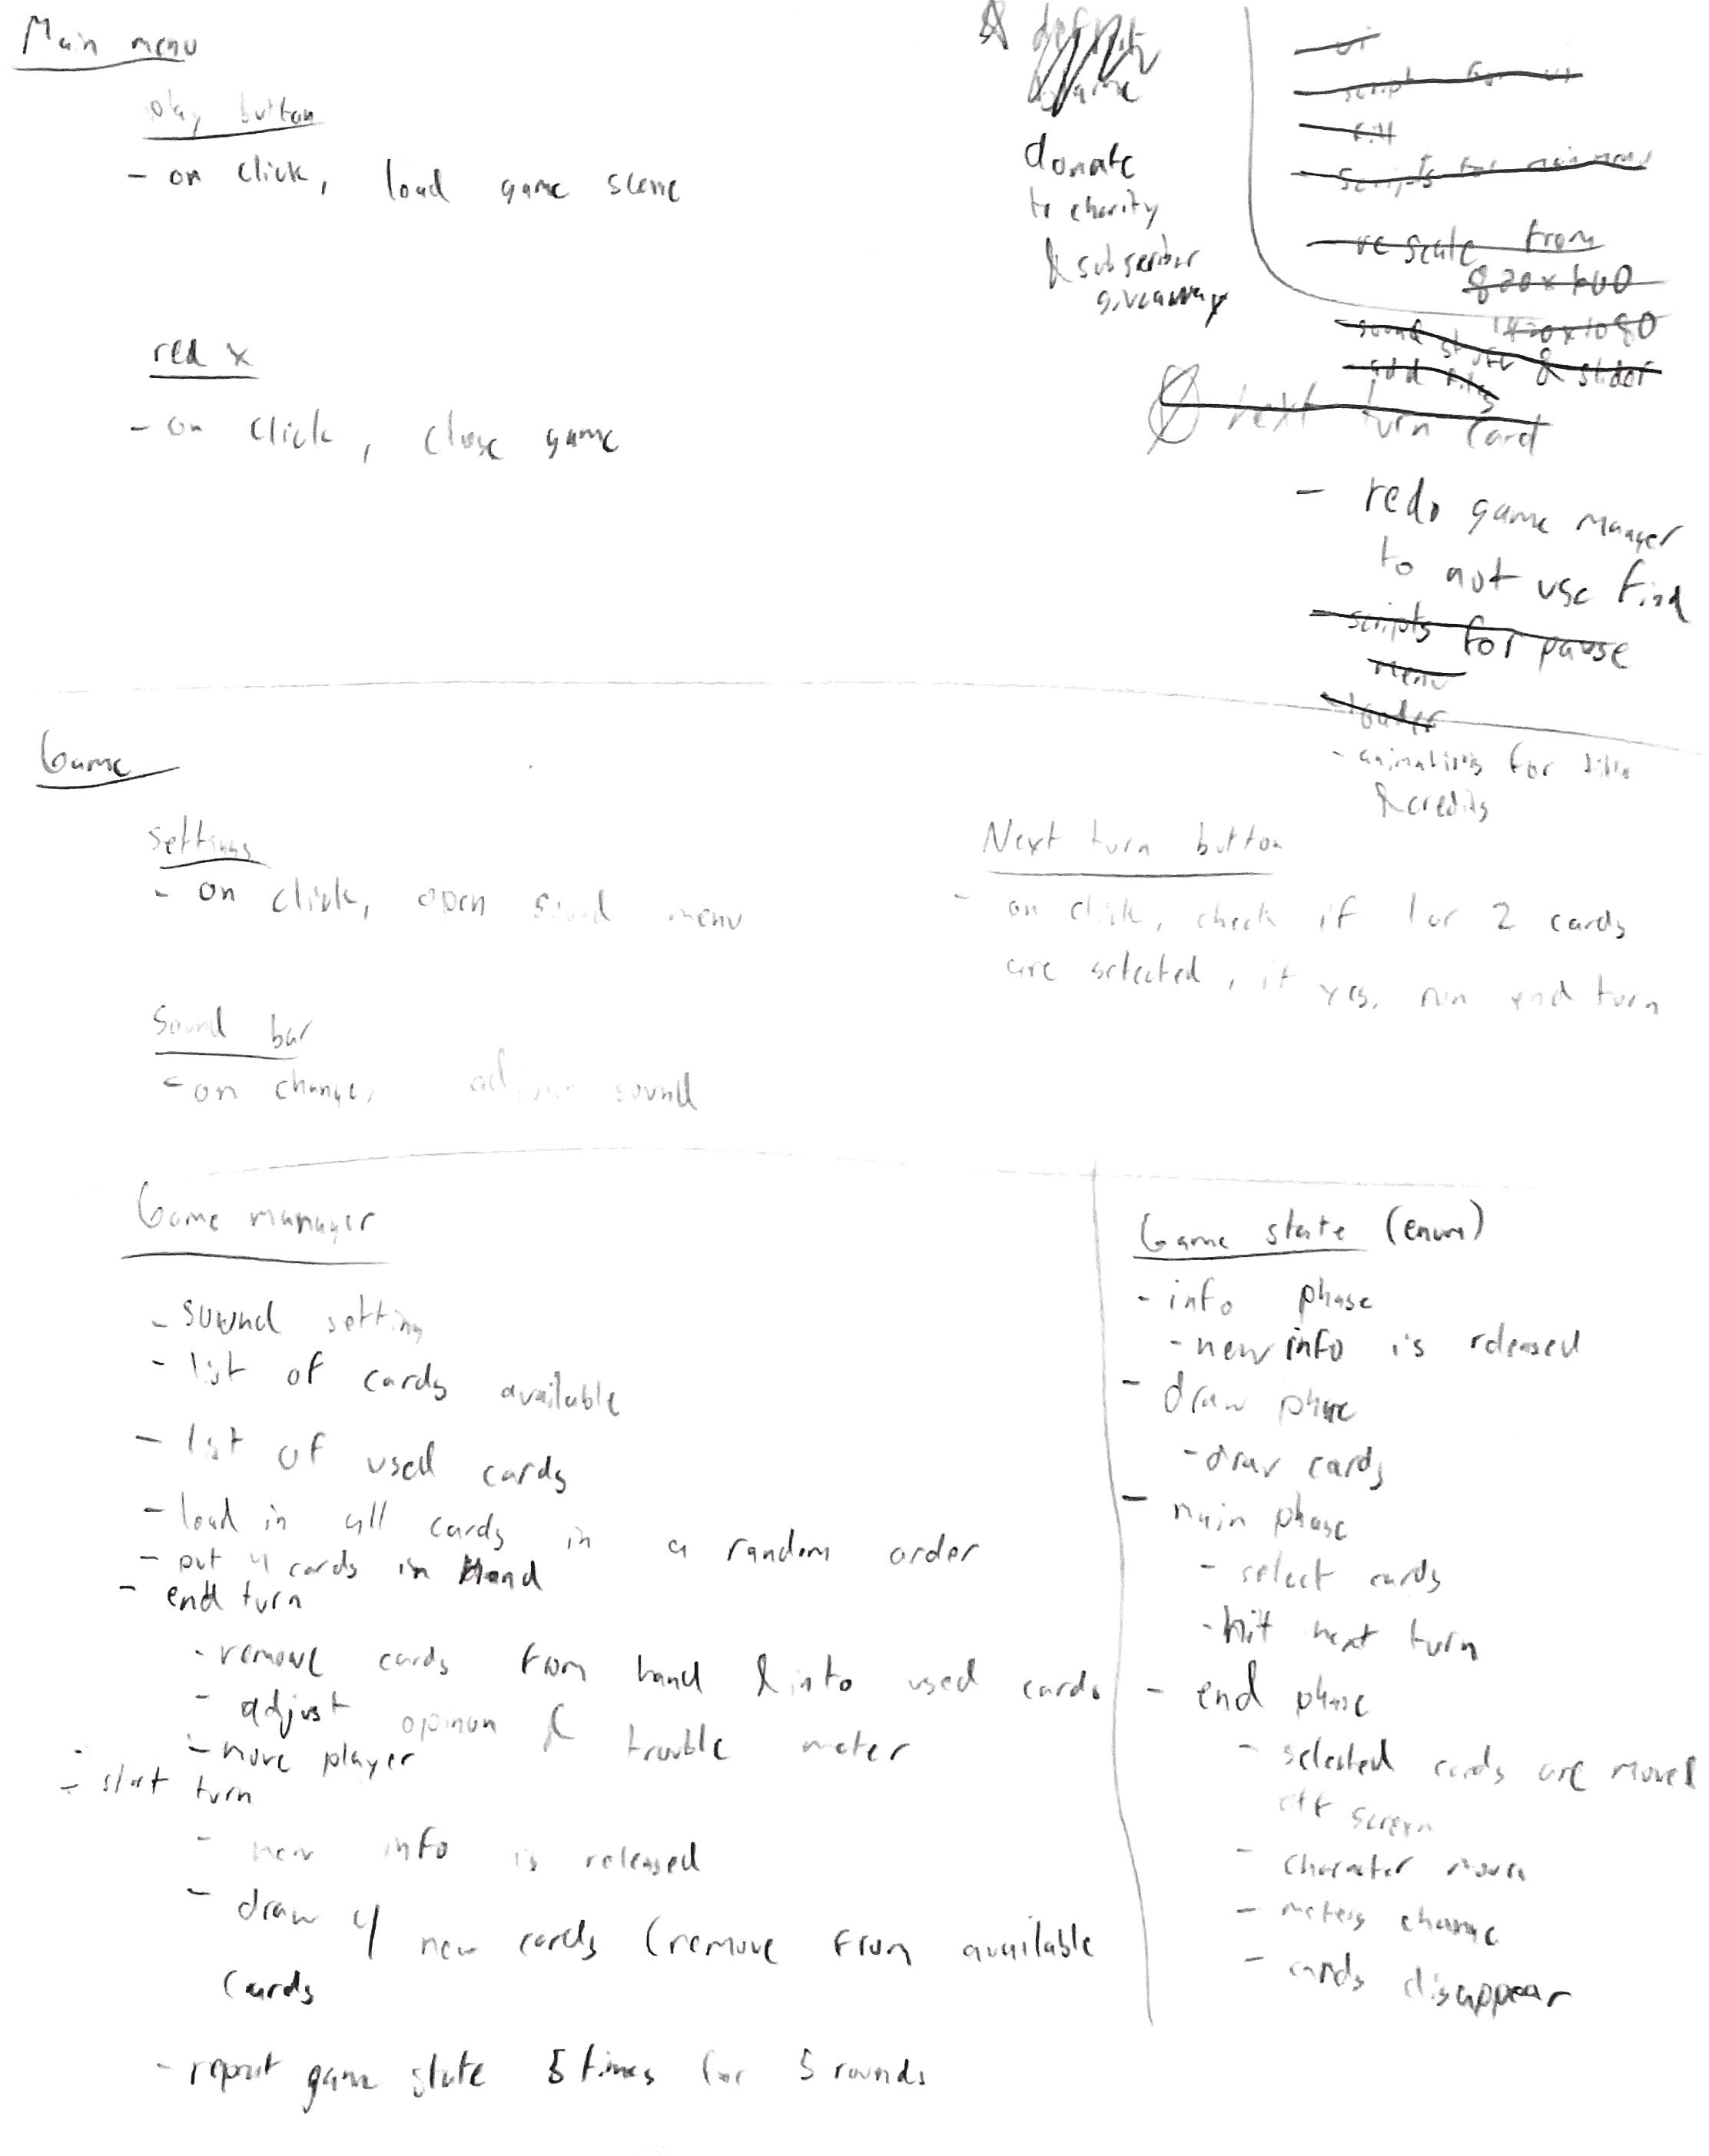 Main menu
play button
- on click, load game scene
red x
- on click, close game
donate
to charity
& subscriber
giveaway
- ui
- script for ui
- scripts for main menu
- rescale from
1920x1080
- sound stuff & slider
next turn card
- redo game manager
to not use find
- scripts for pause
menu
- loader
- animations for title
& credits
Game
settings
- on click, open sound menu
Sound bar
- on change, adjust sound
Next turn button
- on click, check if 1 or 2 cards
are selected, if yes, run end turn
Game manager
- sound setting
- list of cards available
- list of used cards
- load in all cards in a random order
- put 4 cards in hand
- end turn
- remove cards from hand & into used cards
- adjust opinion & trouble meter
- move player
- start turn
- new info is released
- draw 4 new cards (remove from available
cards
- repeat game state 5 times for 5 rounds
Game state (enum)
- info phase
- new info is released
- draw phase
- draw cards
- main phase
- select cards
- hit next turn
- end phase
- selected cards are moved
off screen
- character moves
- meters change
- cards disappear